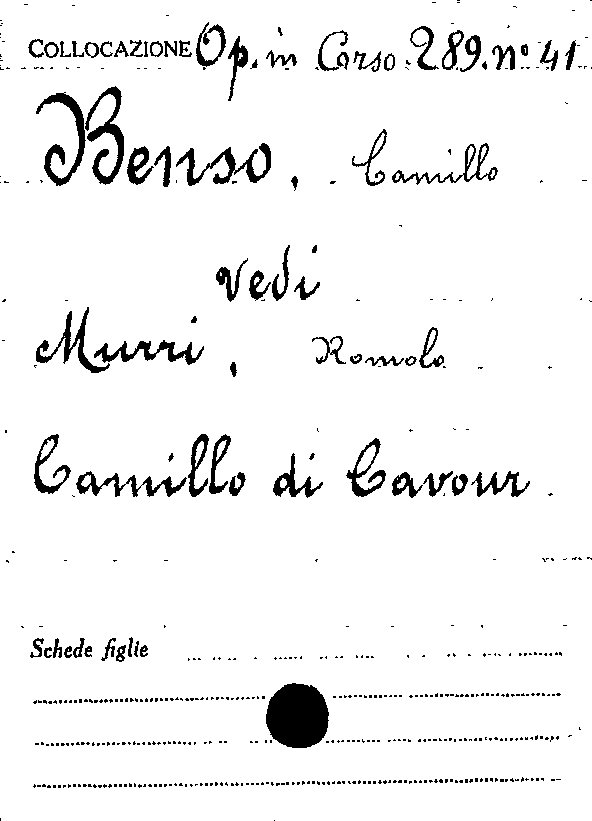 COLLOCAZIONE Op. in Corso. 289. nº 41
Benso, Camillo
vedi
Murri, Romolo
Camillo di Cavour.
Schede figlie